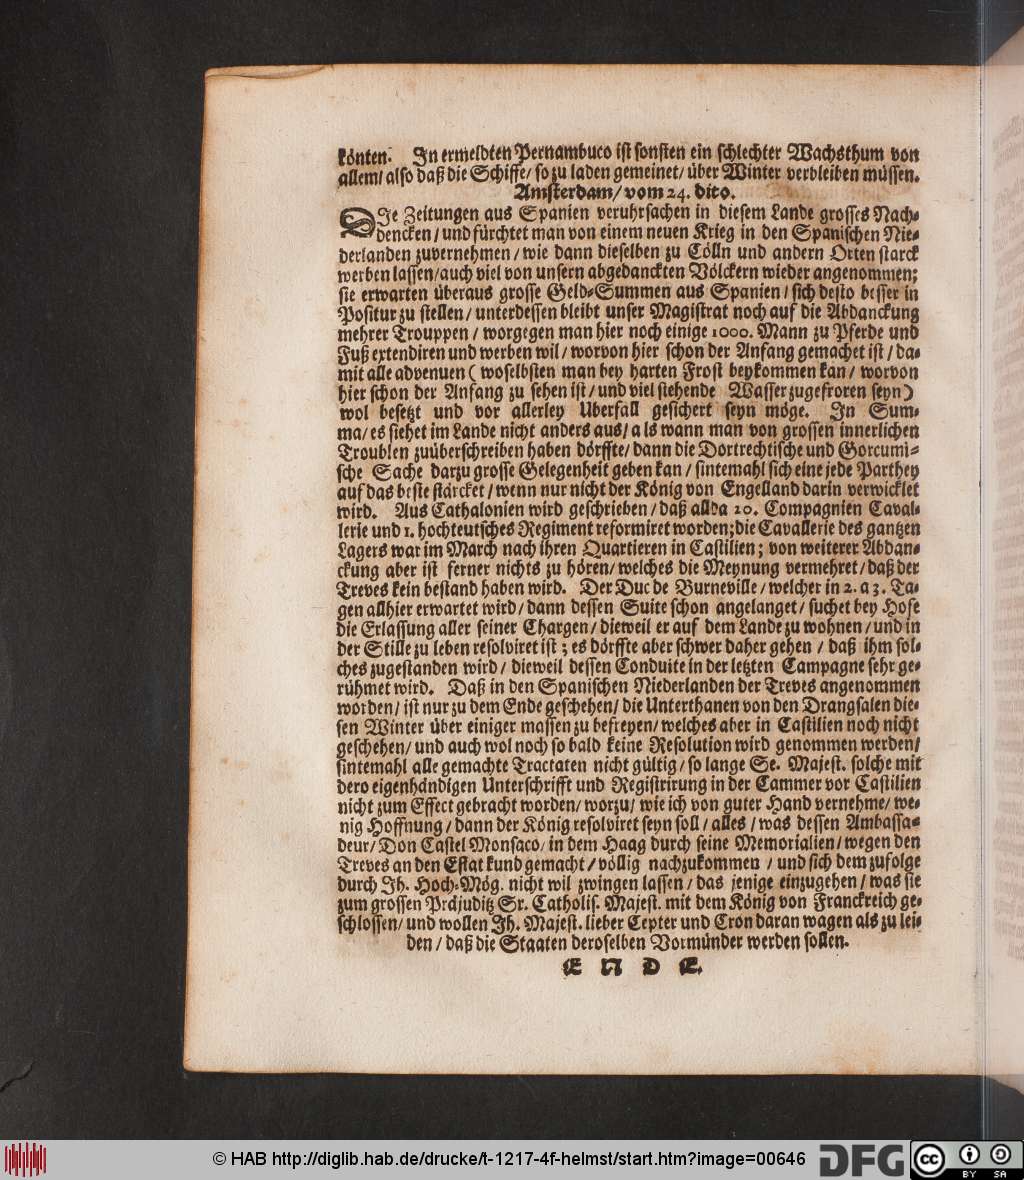 könten. In ermeldten Pernambuco ist sonsten ein schlechter Wachsthum von
allem/ also daß die Schiffe/ so zu laden gemeinet/ über Winter verbleiben müssen.
Amsterdam/ vom 24. dito.
DIe Zeitungen aus Spanien veruhrsachen in diesem Lande grosses Nach-
dencken/ und fürchtet man von einem neuen Krieg in den Spanischen Nie-
derlanden zuvernehmen/ wie dann dieselben zu Cölln und andern Orten starck
werben lassen/ auch viel von unsern abgedanckten Völckern wieder angenommen;
sie erwarten überaus grosse Geld-Summen aus Spanien/ sich desto besser in
Positur zu stellen/ unterdessen bleibt unser Magistrat noch auf die Abdanckung
mehrer Trouppen/ worgegen man hier noch einige 1000. Mann zu Pferde und
Fuß extendiren und werben wil/ worvon hier schon der Anfang gemachet ist/ da-
mit alle advenuen ( woselbsten man bey harten Frost beykommen kan/ worvon
hier schon der Anfang zu sehen ist/ und viel stehende Wasser zugefroren seyn)
wol besetzt und vor allerley Uberfall gesichert seyn möge. In Sum-
ma/ es siehet im Lande nicht anders aus/ als wann man von grossen innerlichen
Troublen zuüberschreiben haben dörffte/ dann die Dortrechtische und Gorcumi-
sche Sache darzu grosse Gelegenheit geben kan/ sintemahl sich eine jede Parthey
auf das beste stärcket/ wenn nur nicht der König von Engelland darin verwicklet
wird. Aus Cathalonien wird geschrieben/ daß allda 20. Compagnien Caval-
lerie und 1. hochteutsches Regiment reformiret worden; die Cavallerie des gantzen
Lagers war im March nach ihren Quartieren in Castilien; von weiterer Abdan-
ckung aber ist ferner nichts zu hören/ welches die Meynung vermehret/ daß der
Treves kein bestand haben wird. Der Duc de Burneville/ welcher in 2. a 3. Ta-
gen allhier erwartet wird/ dann dessen Suite schon angelanget/ suchet bey Hofe
die Erlassung aller seiner Chargen/ dieweil er auf dem Lande zu wohnen/ und in
der Stille zu leben resolviret ist; es dörffte aber schwer daher gehen/ daß ihm sol-
ches zugestanden wird/ dieweil dessen Conduite in der letzten Campagne sehr ge-
rühmet wird. Daß in den Spanischen Niederlanden der Treves angenommen
worden/ ist nur zu dem Ende geschehen/ die Unterthanen von den Drangsalen die-
sen Winter über einiger massen zu befreyen/ welches aber in Castilien noch nicht
geschehen/ und auch wol noch so bald keine Resolution wird genommen werden/
sintemahl alle gemachte Tractaten nicht gültig/ so lange Se. Majest. solche mit
dero eigenhändigen Unterschrifft und Registrirung in der Cammer vor Castilien
nicht zum Effect gebracht worden/ worzu/ wie ich von guter Hand vernehme/ we-
nig Hoffnung/ dann der König resolviret seyn soll/ alles/ was dessen Ambassa-
deur/ Don Castel Monsaco/ in dem Haag durch seine Memorialien/ wegen den
Treves an den Estat kund gemacht/ völlig nachzukommen/ und sich dem zufolge
durch Ih. Hoch-Mög. nicht wil zwingen lassen/ das jenige einzugehen/ was sie
zum grossen Präjuditz Sr. Catholis. Majest. mit dem König von Franckreich ge-
schlossen/ und wollen Ih. Majest. lieber Cepter und Cron daran wagen als zu lei-
den/ daß die Staaten deroselben Vormünder werden sollen.
E N D E.
© HAB http://diglib.hab.de/drucke/t-1217-4f-helmst/start.htm?image=00646
DFG
cc BY SA